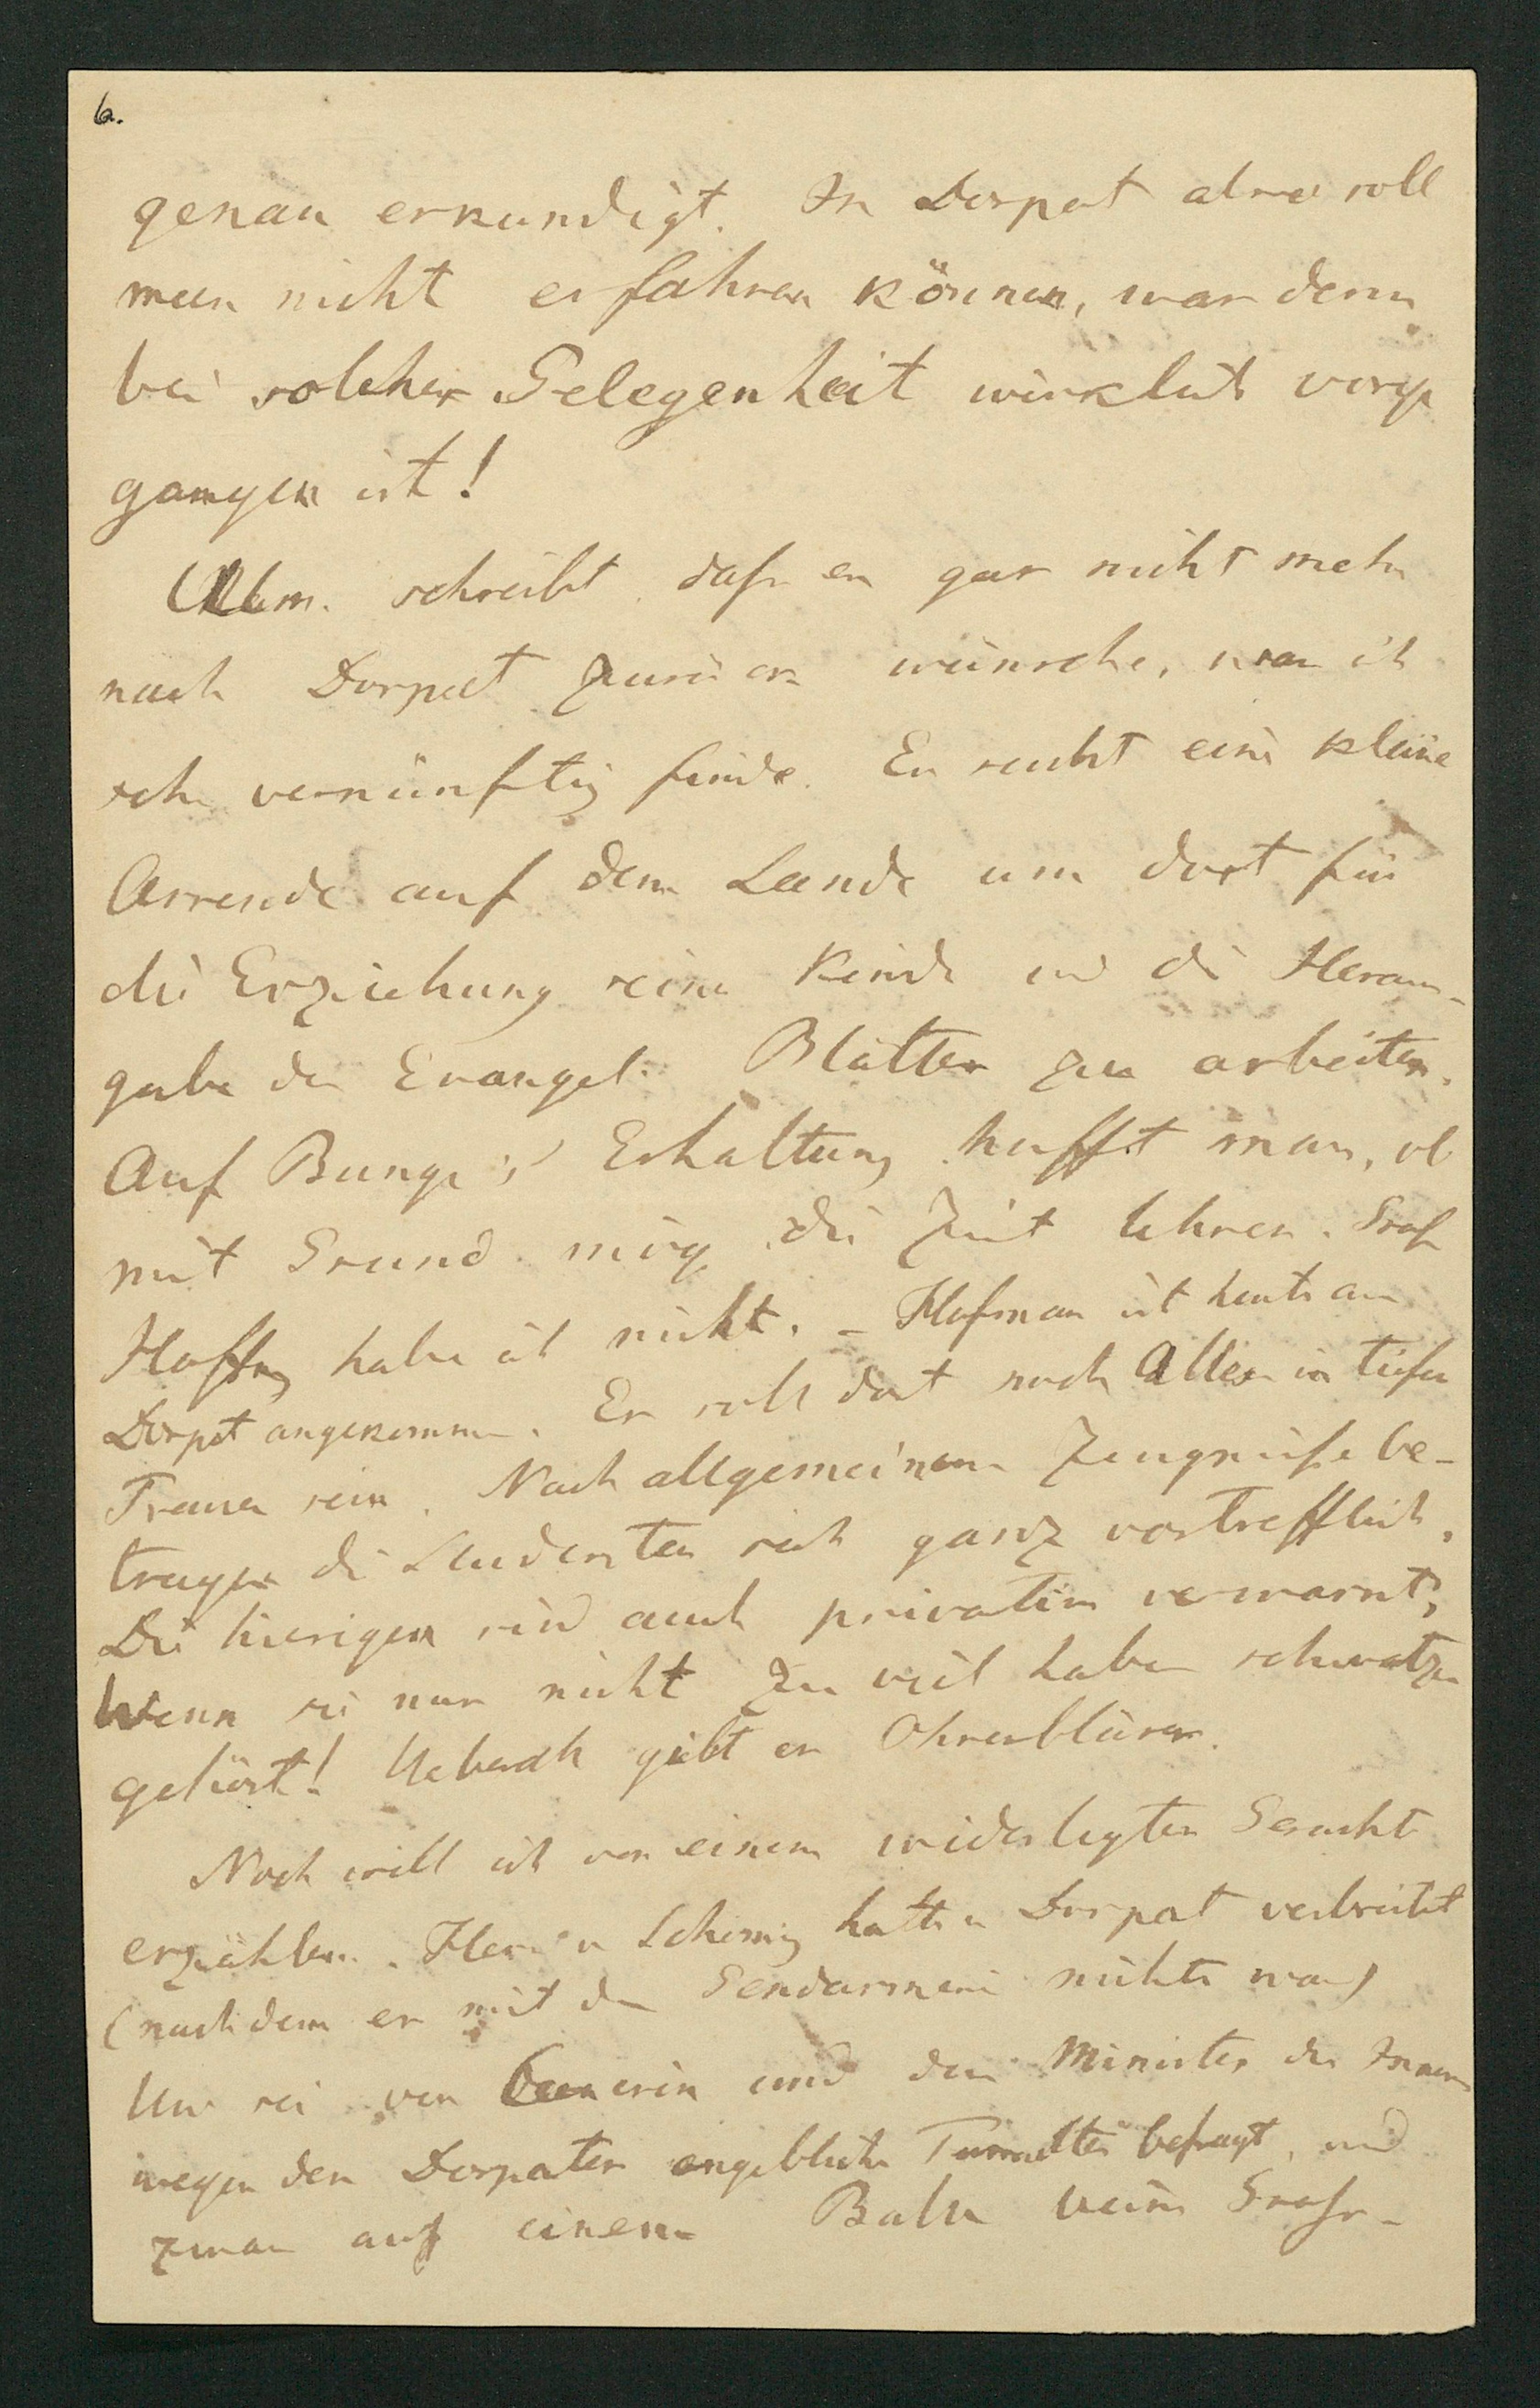 6.
genau erkundigt. In Dorpat also soll
man nicht erfahren können, was denn
bei solcher Gelegenheit wirklich vorge
gangen ist!
Ulm. schreibt, daß er gar nicht mehr
nach Dorpat zurück wünsche, was ich
sehr vernünftig finde. Er sucht eine kleine
Arrende auf dem Lande um dort für
die Erziehung seiner Kinder und die Heraus-
gabe der Evangel. Blätter zu arbeiten.
Auf Bunge's Erhaltung hofft man, ob
mit Grund möge die Zeit lehren. Große
Hoffng habe ich nicht. – Hofman ist heute aus
Dorpat angekommen. Er soll dort noch Alles in tiefer
Trauer sein. Nach allgemeinem Zeugniße be-
tragen die Studenten sich ganz vortrefflich.
Die hiesigen sind auch privatim verwarnt;
Wenn sie nur nicht zu viel haben schwatzen
gehört! Ueberall giebt es Ohrenbläser.
Noch will ich von einem widerlegten Gerücht
erzählen. Herr v hatte in Dorpat verbreitet
(nachdem er mit der Gendarmerie nichts war)
Uw. sei von Cancrin und dem Minister des Innern
wegen der Dorpater angeblichen Tumulte befragt, und
zwar auf einem Balle beim Groß-